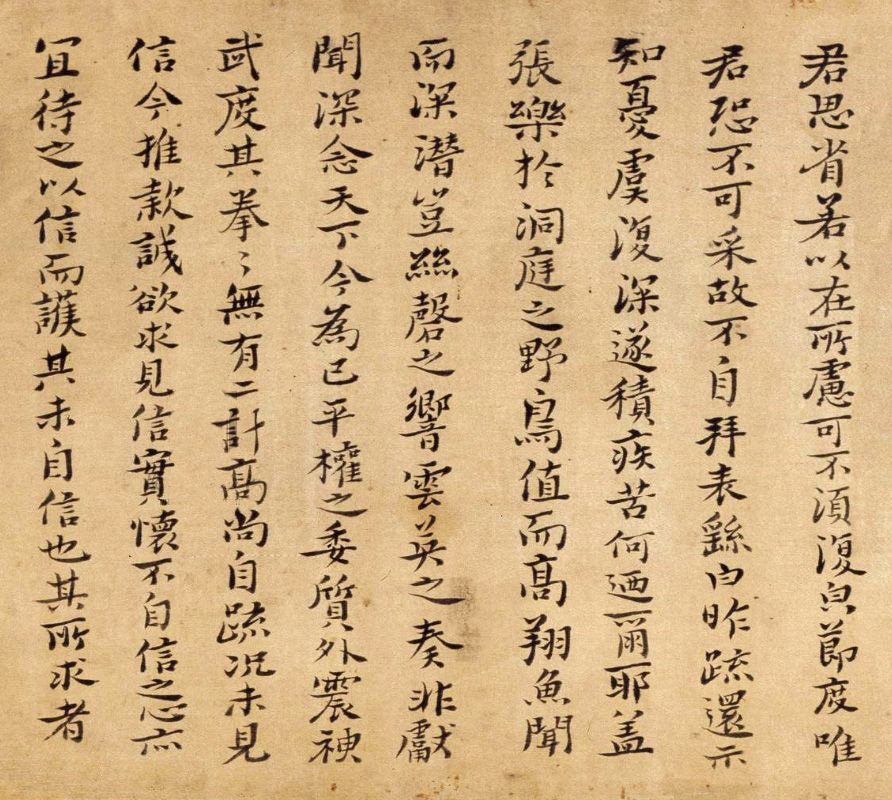 君思省若以在所慮可不須復皃節度唯
君恐不可采故不自拜表繇白昨疏還示
知憂虞復深遂積疾苦何迺爾耶蓋
張樂於洞庭之野鳥值而高翔魚聞
而深潛豈絲磬之響雲英之奏非獻
聞深念天下今為已平權之委質外震神
武度其拳〻無有二計高尚自疏況未見
信今推款誠欲求見信實懷不自信之心亦
宜待之以信而護其未自信也其所求者